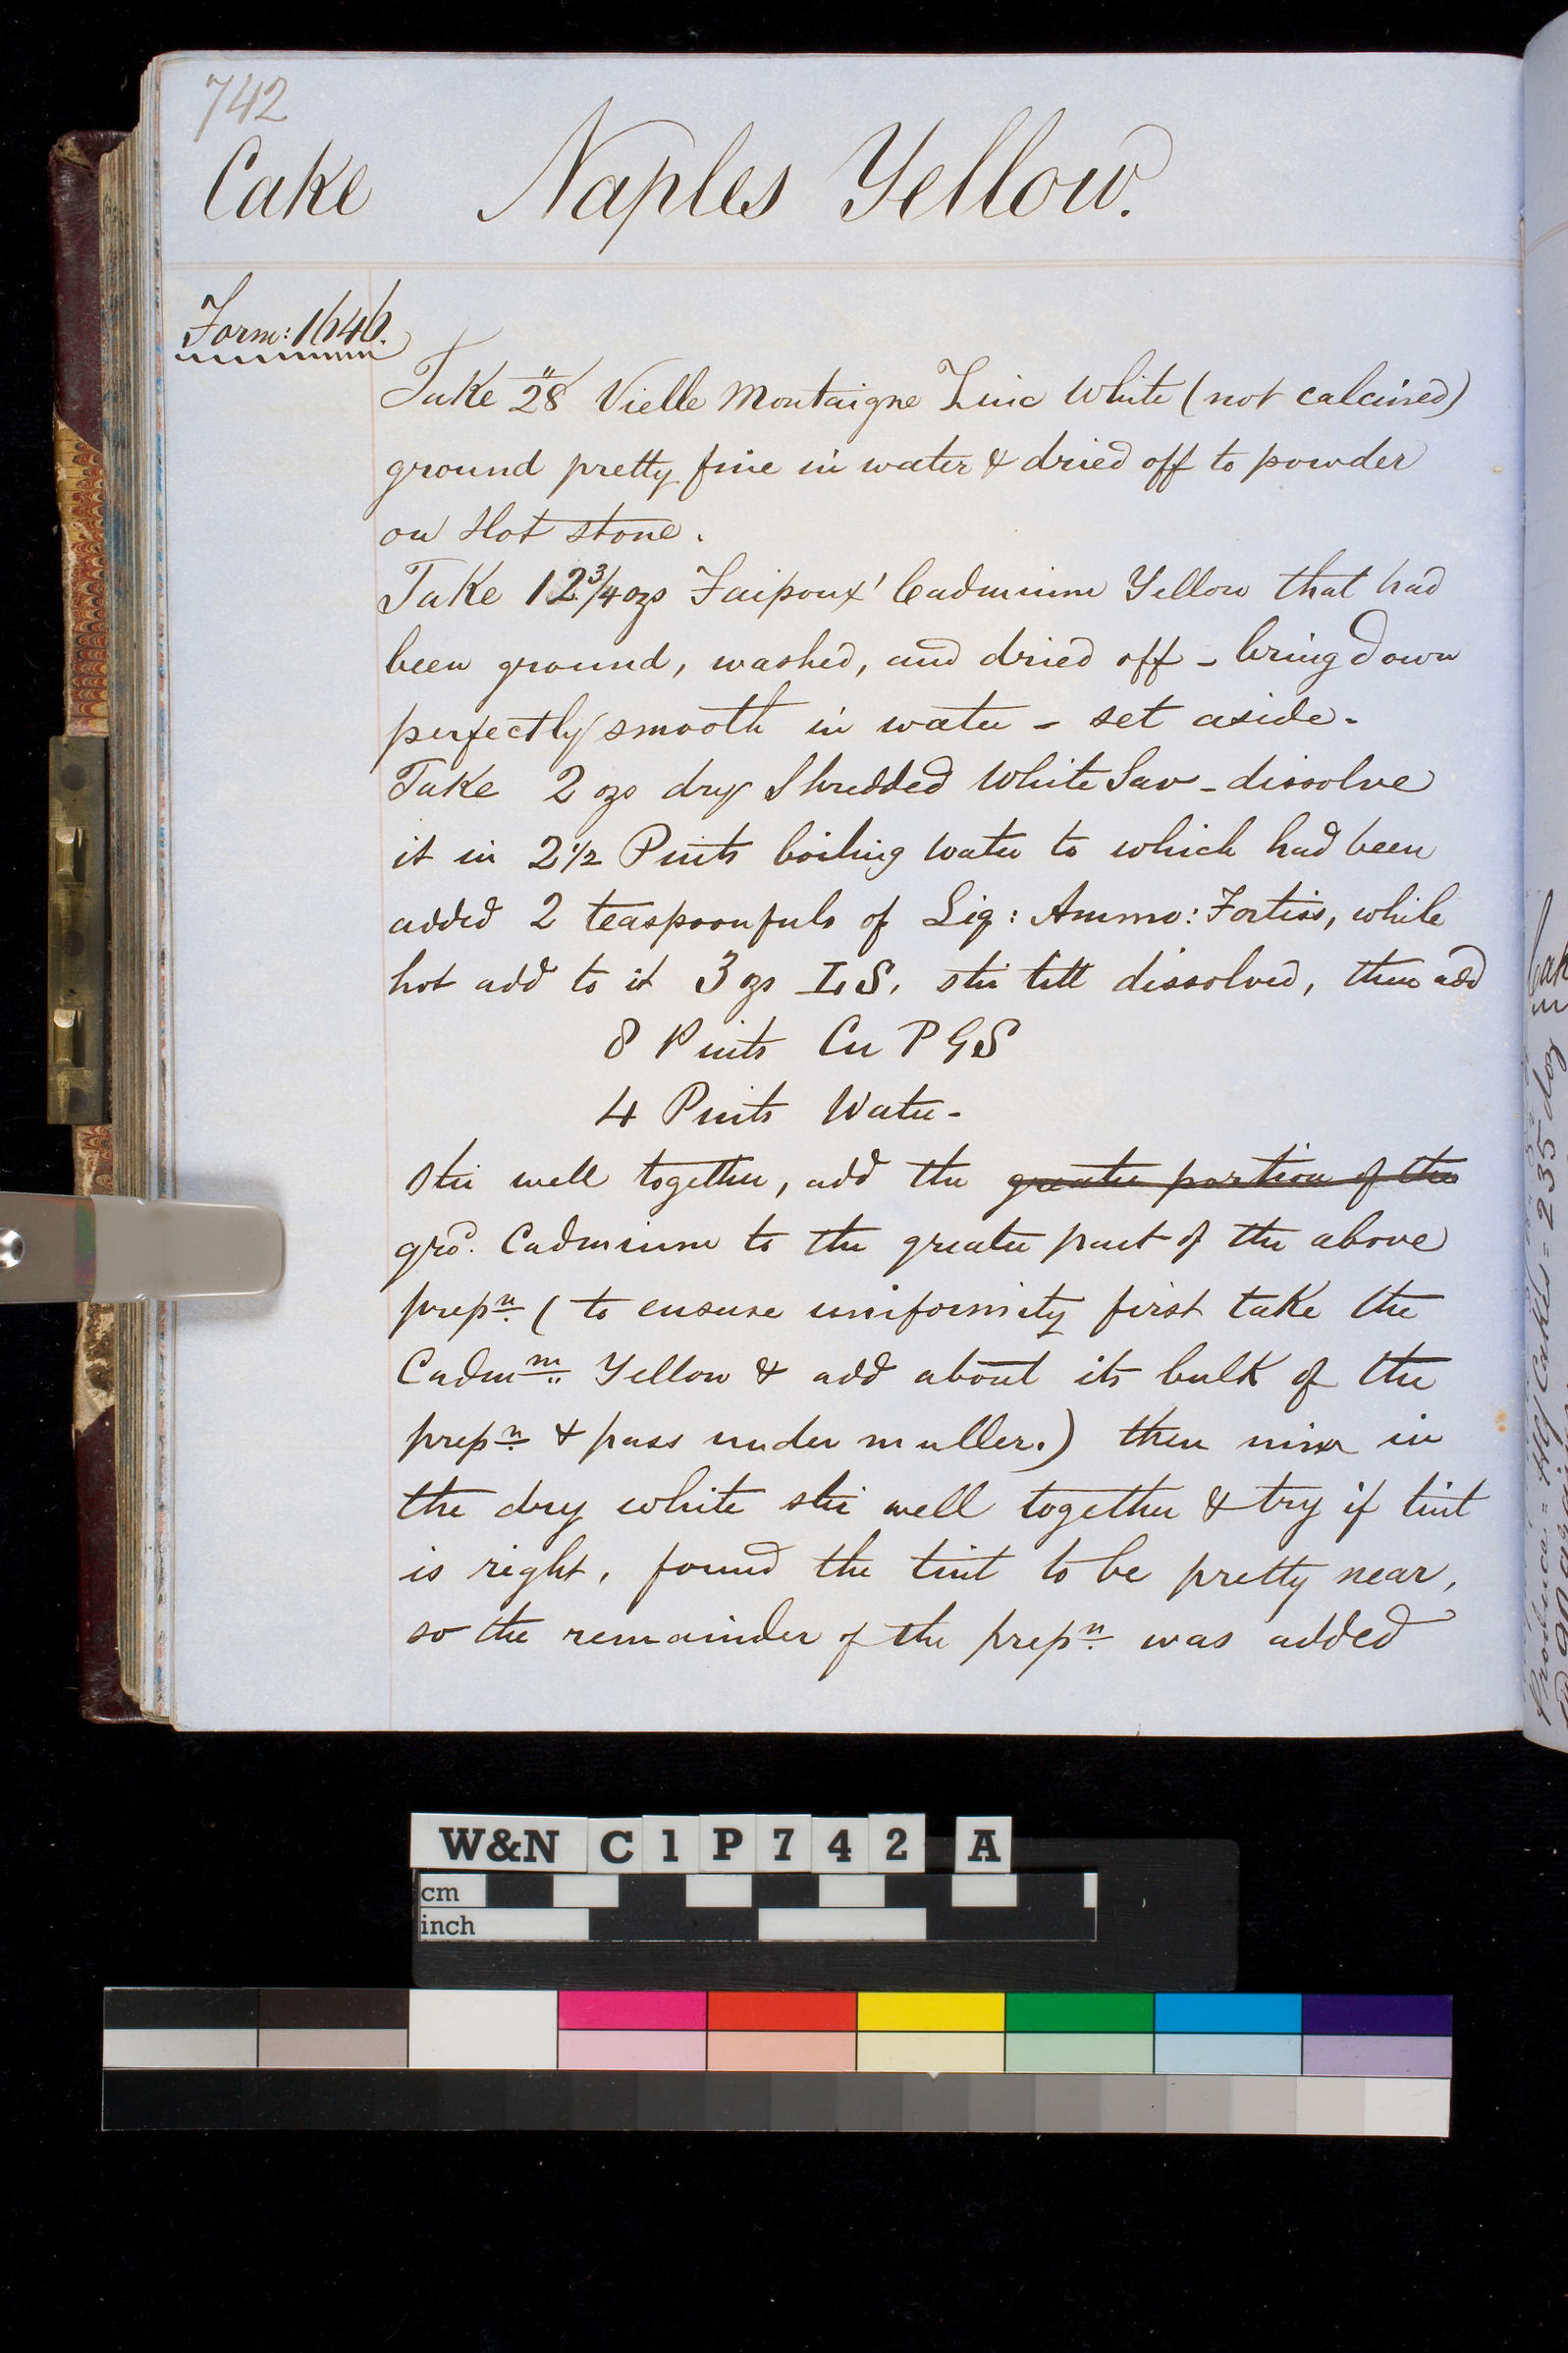 742
Cake Naples Yellow.
Form: 1646.
Take 28" Vielle Montaigne Zinc White (not calcined)
ground pretty fine in water & dried off to powder
on Hot stone.
Take 12 3/4 ozs Faipoux' Cadmium Yellow that had
been ground, washed, and dried off - bring down
perfectly smooth in water - set aside -
Take 2 ozs dry Shredded White Sav - dissolve
it in 2 1/2 Pints boiling water to which had been
added 2 teaspoonfuls of Liq: Ammo: Fortiss, while
hot add to it 3 ozs I.S. stir till dissolved, then add
8 Pints Cu P G S
4 Pints Water -
stir well together, add the greater portion of the
gro^d. Cadmium to the greater part of the above
prep^n. (to ensure uniformity first take the
Cadm^m. Yellow & add about its bulk of the
prep^n. & pass under muller.) then mix in
the dry white stir well together & try if tint
is right, found the tint to be pretty near,
so the remainder of the prep^n. was added
W&N C1P742 A
cm
inch